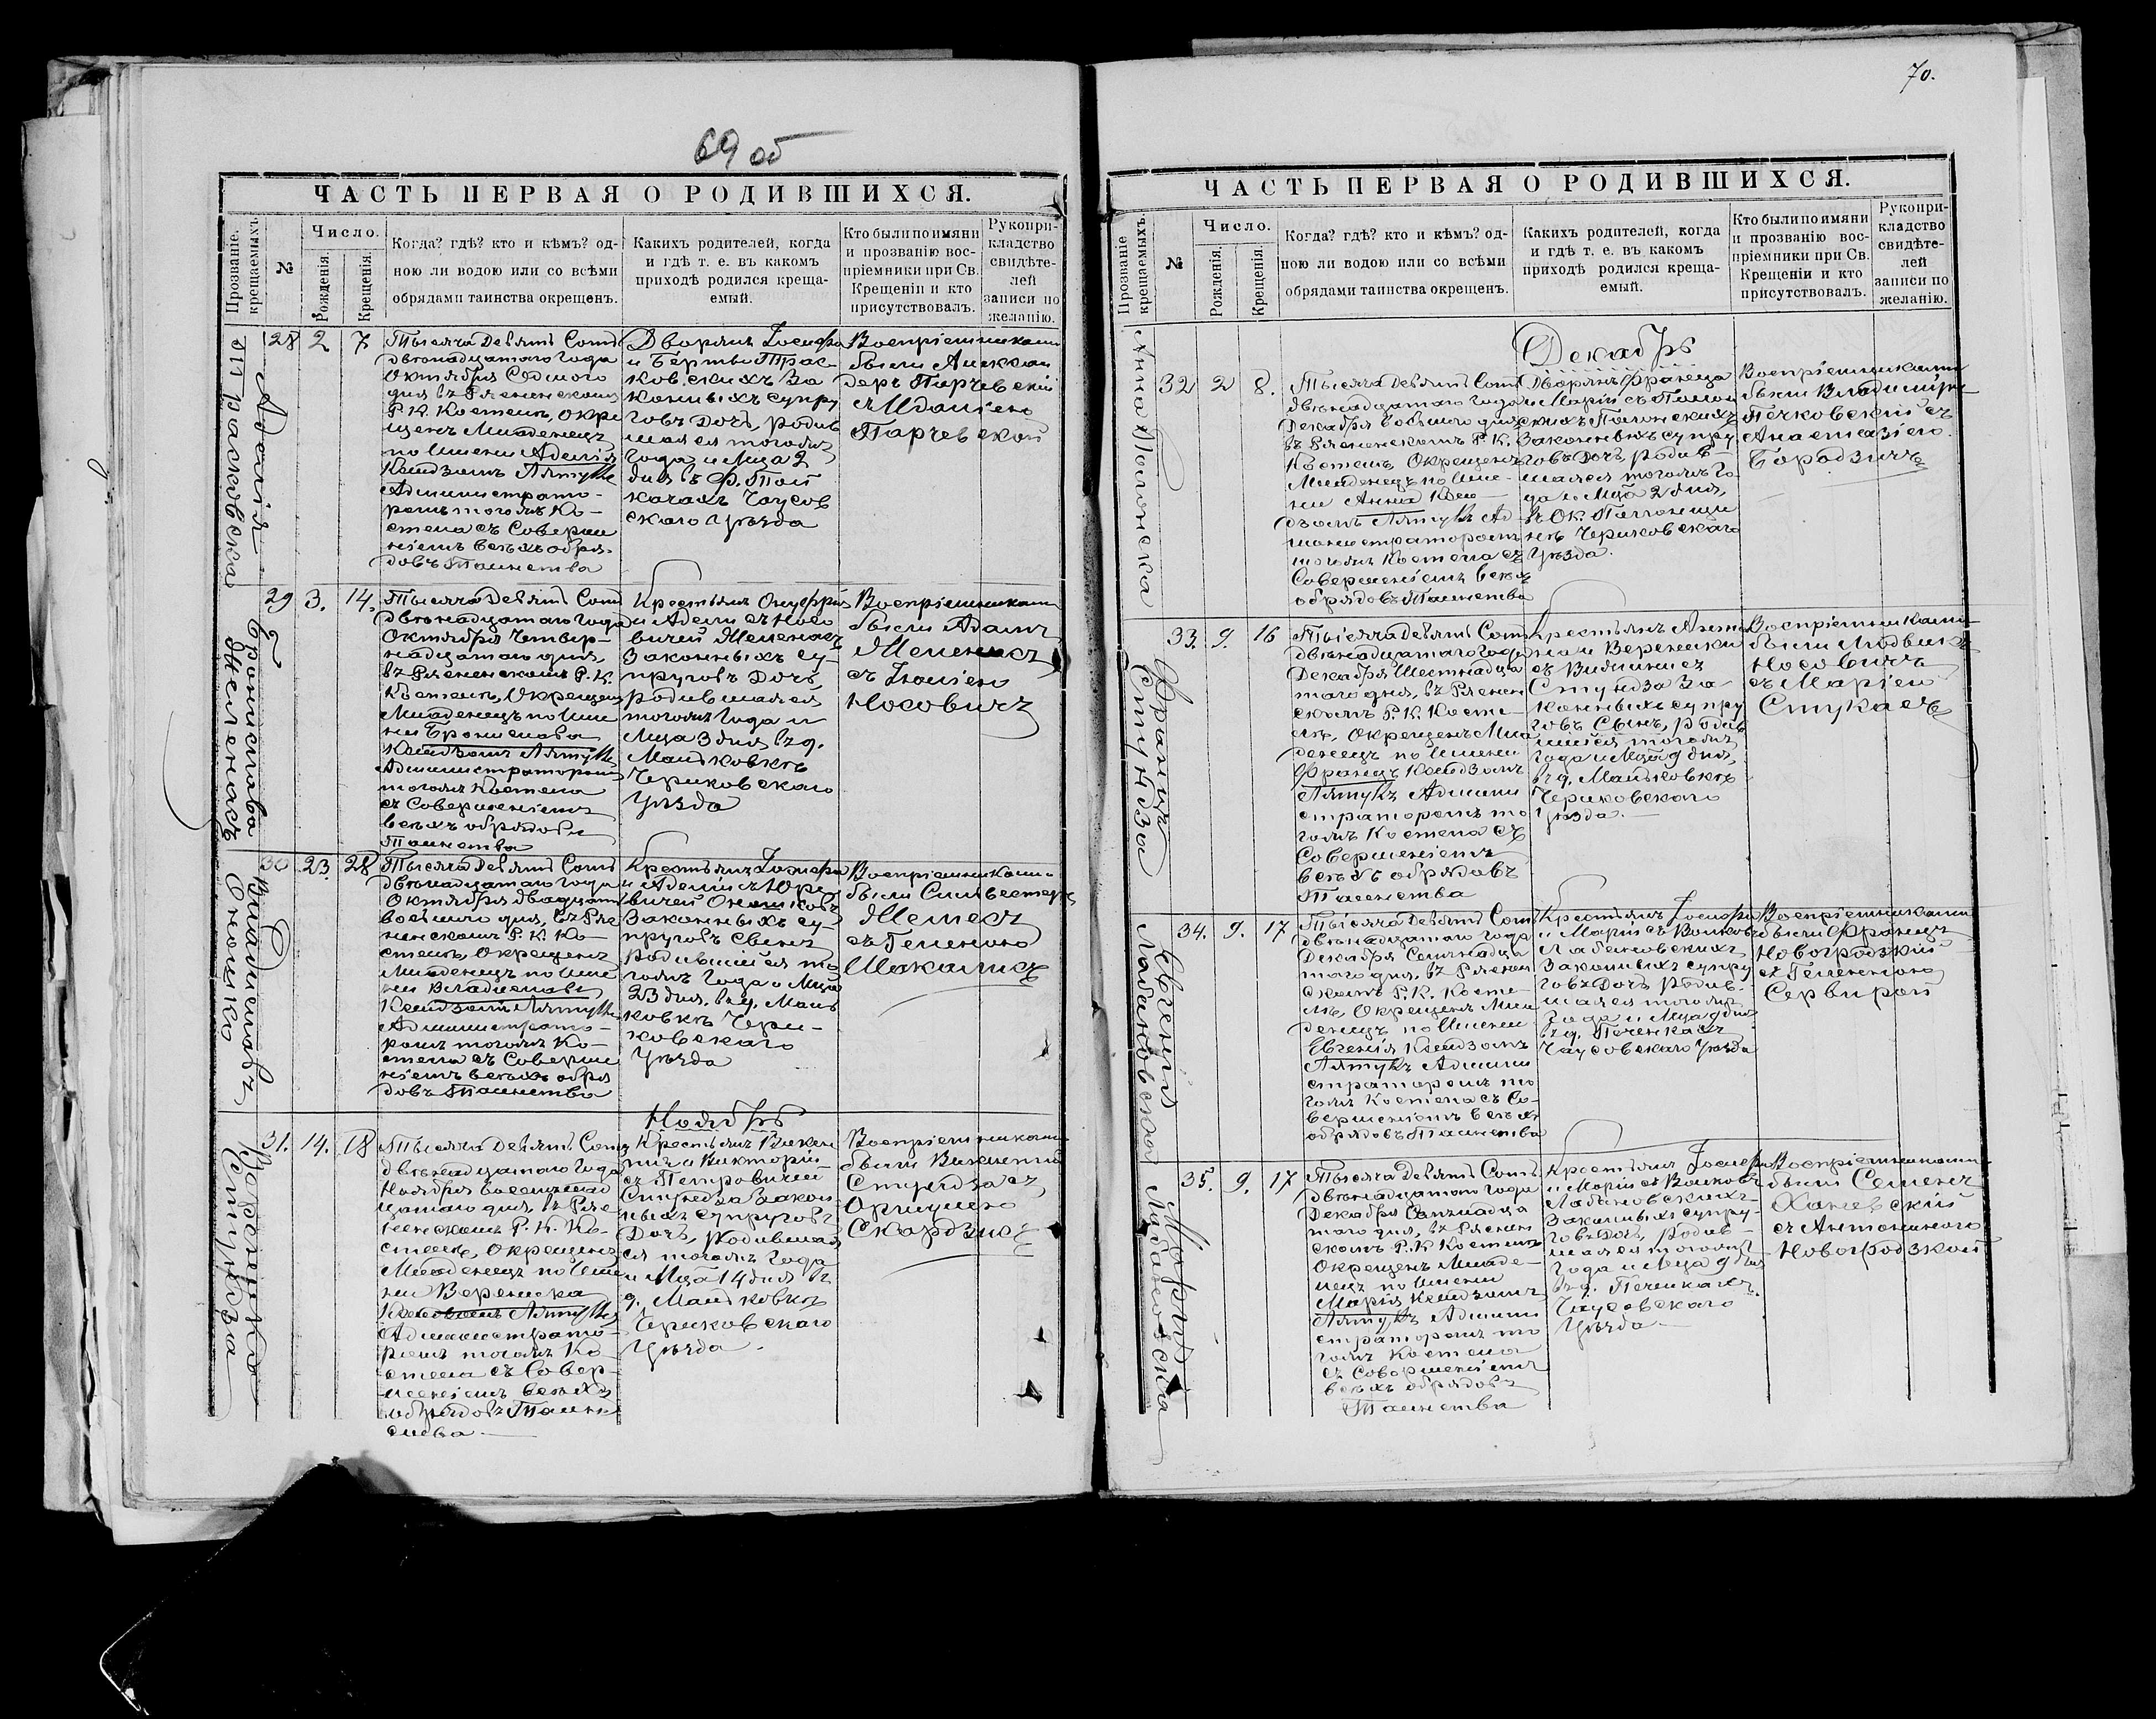 69 об
ЧАСТЬ ПЕРВАЯ О РОДИВШИХСЯ.
Прозваніе крещаемыхъ.
№
Число.
Рожденія.
Крещенія.
Когда? гдѣ? кто и кѣмъ? од-
ною ли водою или со всѣми
обрядами таинства окрещенъ.
Какихъ родителей, когда
и гдѣ т. е. въ какомъ
приходѣ родился креща-
емый.
Кто были по имяни
и прозванію вос-
пріемники при Св.
Крещеніи и кто
присутствовалъ.
Рукопри-
кладство
свидѣте-
лей
записи по
желанію.
Аделія
28 2 7
Тысяча девятьсотъ
двѣнадцатаго года
Октября Седмого
дня въ Рясненскомъ
Р. К. Костелѣ, окре
щенъ Младенецъ
по Имени Аделія
Ксендзомъ
Администрато-
ромъ тогожъ Ко-
стела съ Соверше
ніемъ всѣхъ обря-
довъ Таинства
Дворянъ Іосифа
и Берты Трас-
ковскихъ За
конныхъ супру
говъ Дочь, родив
шаяся тогожъ
Года и Мца 2
дня въ Ф.
Чаусов
скаго Уѣзда
Воспріемниками
были Александ
деръ Парчевскій
съ
Парчевской
Бронислава
29 3. 14.
Тысяча девятьсотъ
двѣнадцатаго года
Октября Четыр-
надцатаго дня,
въ Рясненскомъ Р. К.
Костелѣ, Окрещенъ
Младенецъ по Име
ни Бронислава
Ксендзомъ
Администраторомъ
тогожъ Костела
съ Совершеніемъ
всѣхъ обрядовъ
Таинства
Крестьянъ Онуфрія
и Адели съ Носо
вичей
Законныхъ Су-
пруговъ Дочь
родившаяся
тогожъ Года и
Мца 3 дня въ д.
Маньковкѣ
Чериковскаго
Уѣзда
Воспріемниками
были Адамъ
съ Юліею
Носовичъ
Владиславъ
Оношко
30 23. 28
Тысяча девятьсотъ
двѣнадцатаго года
Октября двадцать
восьмого дня, въ Ряс
ненскомъ Р. К. Ко-
стелѣ, Окрещенъ
Младенецъ по Име
ни Владиславъ
Ксендзомъ
Администрато-
ромъ тогожъ Ко-
стела съ Соверше
ніемъ всѣхъ обря
довъ Таинства
Крестьянъ Іосифа
и Аделіи съ Юре
вичей Оношковъ
Законныхъ су-
пруговъ Сынъ
родившійся то
гожъ Года и Мца
23 дня. въ д. Мань
ковкѣ Чери-
ковскаго
Уѣзда
Воспріемниками
были Сильвестеръ
съ Геленою
Ноябрь
Вероника
Стундза
31. 14. 18
Тысяча девятьсотъ
двѣнадцатаго года
Ноября восемнад
цатаго дня, въ Ряс
ненскомъ Р. К. Ко-
стелѣ, Окрещенъ
Младенецъ по Име
ни Вероника
Ксендзомъ
Администрато-
ромъ тогожъ Ко-
стела съ Совер-
шеніемъ всѣхъ
обрядовъ Таин
ства
Крестьянъ Викен
тія и Викторіи
съ Петровичей
Стундза Закон
ныхъ супруговъ
Дочь, родившая
ся тогожъ Года
и Мца 14 дня въ
д. Маньковкѣ
Чериковскаго
Уѣзда.
Воспріемниками
были Викентій
Стундза съ
70.
ЧАСТЬ ПЕРВАЯ О РОДИВШИХСЯ.
Прозваніе крещаемыхъ.
№
Число.
Рожденія.
Крещенія.
Когда? гдѣ? кто и кѣмъ? од-
ною ли водою или со всѣми
обрядами таинства окрещенъ.
Какихъ родителей, когда
и гдѣ т. е. въ какомъ
приходѣ родился креща-
емый.
Кто были по имяни
и прозванію вос-
пріемники при Св.
Крещеніи и кто
присутствовалъ.
Рукопри-
кладство
свидѣте-
лей
записи по
желанію.
Декабрь
Анна Полонска
32 2 8.
Тысяча девятьсотъ
двѣнадцатаго года
Декабря восьмого дня
въ Рясненскомъ Р. К.
Костелѣ Окрещенъ
Младенецъ по Име-
ни Анна Ксен
дзомъ Ад
министраторомъ
тогожъ Костела съ
Совершеніемъ всѣхъ
обрядовъ Таинства
Дворянъ Франца
и Маріи съ
Полонскихъ
Законныхъ супру
говъ Дочь, родив-
шаяся тогожъ Го-
да и Мца 2 дня,
въ Ок.
Чериковскаго
Уѣзда.
Воспріемниками
были Владиміръ
съ
Анастазіею
Бородзичъ
Францъ
Стундза
33. 9. 16
Тысяча девятьсотъ
двѣнадцатаго года
Декабря Шестнадца
таго дня, въРяснен
скомъ Р. К. Косте-
лѣ, Окрещенъ Мла
денецъ по Имени
Францъ Ксендзомъ
Админи
страторомъ то
гожъ Костела съ
Совершеніемъ
всѣхъ обрядовъ
Таинства
Крестьянъ
и Вероники
съ
Стундза За
конныхъ супру
говъ Сынъ, родив
шійся тогожъ
Года и Мца 9 дня,
въ д. Маньковкѣ
Чериковскаго
Уѣзда.
Воспріемниками
были Людвикъ
Носовичъ
съ Маріею
Евгенія
Лабановска
34. 9. 17
Тысяча девятьсотъ
двѣнадцатаго года
Декабря Семнадца
таго дня, въ Ряснен
скомъ Р. К. Косте-
лѣ, Окрещенъ Мла
денецъ по Имени
Евгенія Ксендзомъ
Админи
страторомъ то
гожъ Костела съ Со-
вершеніемъ всѣхъ
обрядовъ Таинства
Крестьянъ Іосифа
и Маріи съ Волковъ
Лабановскихъ
Законныхъ супру
говъ Дочь родив-
шаяся тогожъ
Года и Мца 9 дня
въ д. Печенкахъ
Чаусовскаго Уѣзда
Воспріемниками
были Францъ
Новогродзкій
съ Геленою
Марія
Лабановска
35. 9. 17
Тысяча девятьсотъ
двѣнадцатаго года
Декабря Семнадца
таго дня, въ Ряснен
скомъ Р. К. Костелѣ
Окрещенъ Младе-
нецъ по Имени
Марія Ксендзомъ
Админи
страторомъ то
гожъ Костела
съ Совершеніемъ
всѣхъ обрядовъ
Таинства
Крестьянъ Іосифа
и Маріи съ Волковъ
Лабановскихъ
Законныхъ супру-
говъ Дочь, родив-
шаяся тогожъ
Года и Мца 9 дня
въ д. Печенкахъ
Чаусовскаго
Уѣзда
Воспріемниками
были Семенъ
съ Антониною
Новогродзкой